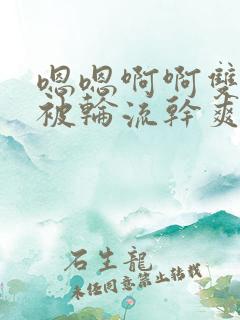 嗯嗯啊啊雙
被輪流幹爽
石生龍
未经同意禁止转载